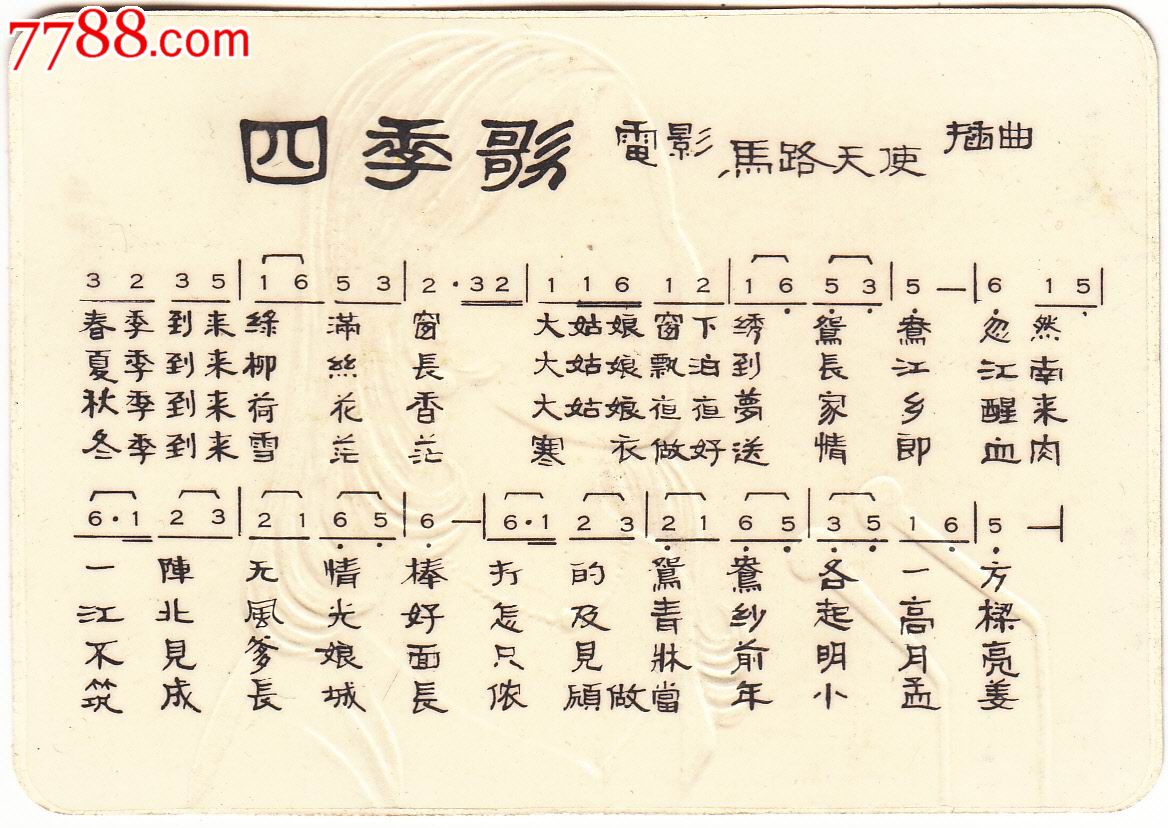 7788.com
四季歌 電影 馬路天使 插曲
3 2 3 5 | 1 6 5 3 | 2 · 3 2 1 1 6 1 2 | 1 6 5 3 | 5 — | 6 1 5 |
春季到来綠滿窗 大姑娘窗下绣鴛鴦忽然
夏季到来柳絲長 大姑娘飘泊到長江江南
秋季到来荷花香 大姑娘夜夜夢家乡醒来
冬季到来雪茫茫 寒衣做好送情郎血肉
6 · 1 2 3 | 2 1 6 5 | 6 — | 6 · 1 2 3 | 2 1 6 5 | 3 5 1 6 | 5 —|
一陣无情棒打的鴛鴦各一方
江北風光好怎及青纱起高樑
不見爹娘面只見牀前明月亮
筑成長城長侬願做當年小孟姜